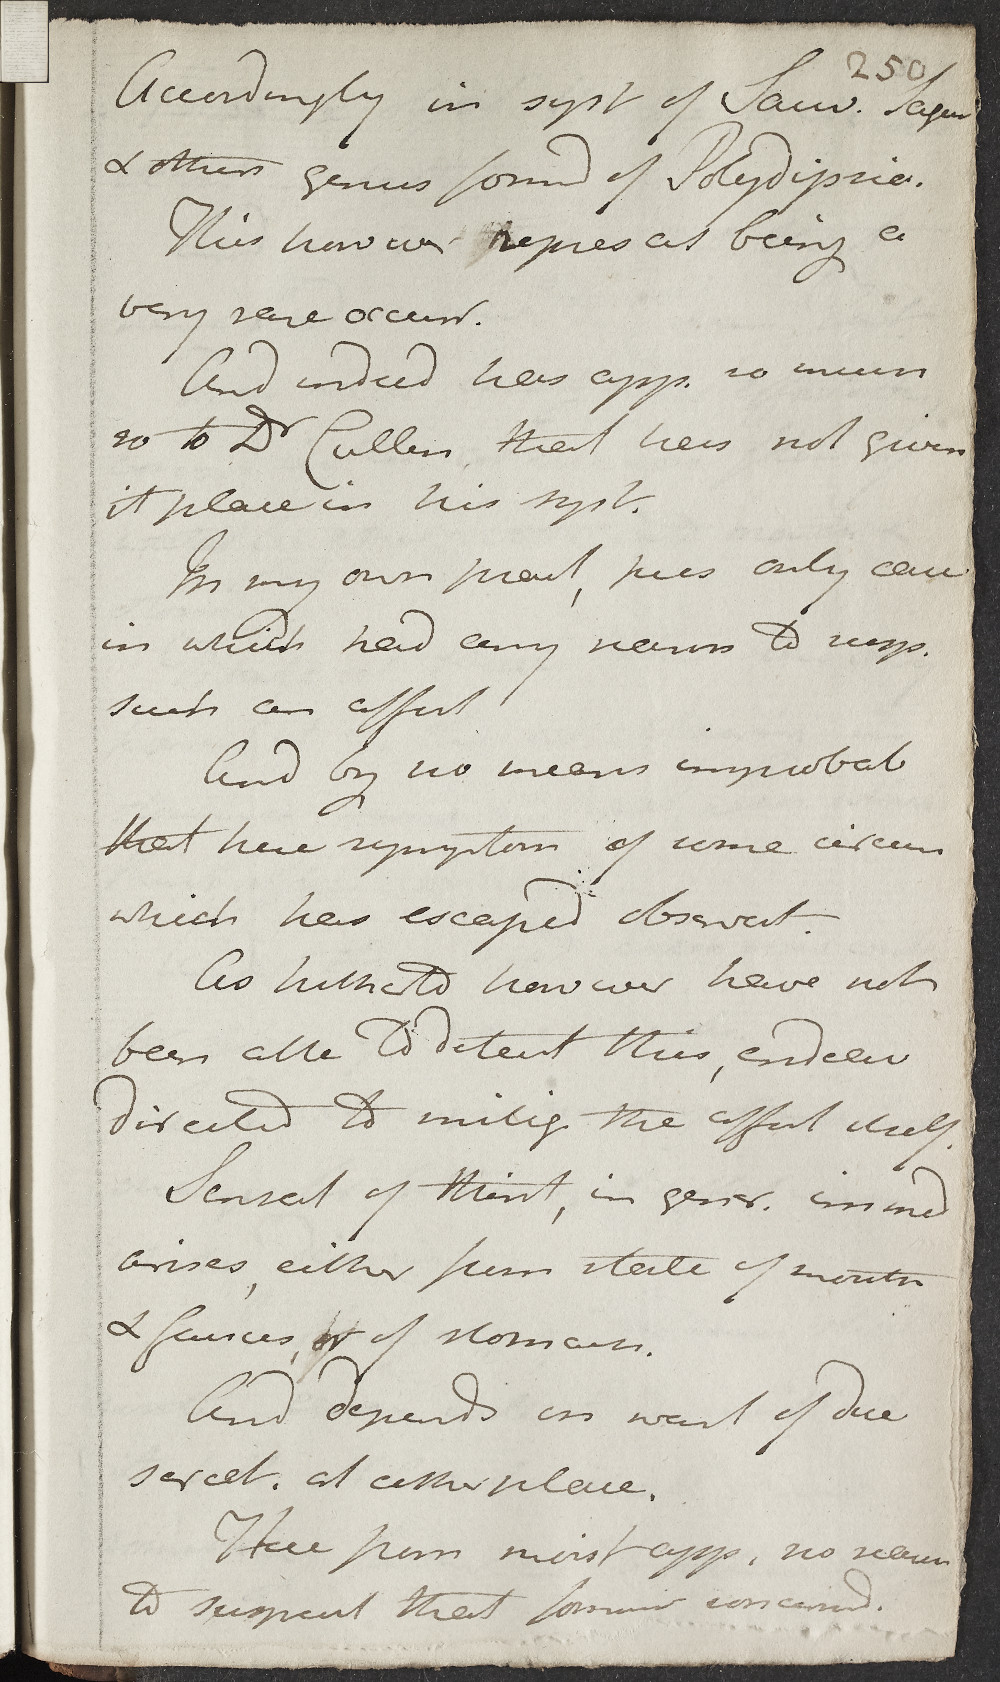 250
Accordingly in syst of Sauv. Sagar
& others genus formd of Polydipsia.
This however repres as being a
very rare occurr.
And indeed has app. so mucn
so to Dr Cullen that has not given
it place in his syst.
In my own pract, this only case
in which had any reason to susp.
such an affect
And by no means improbab
that here symptom of some circum
which has escaped observat.
As hitherto however have not
been able to detect this, endeav
directed to mitig. the affect itself.
Sensat of thirst, in gener. immed
arises, either from state of mouth
& fauces, or of stomach.
And depends on want of due
secret. at either place.
Here from moist app. no reason
to suspect that former concernd.